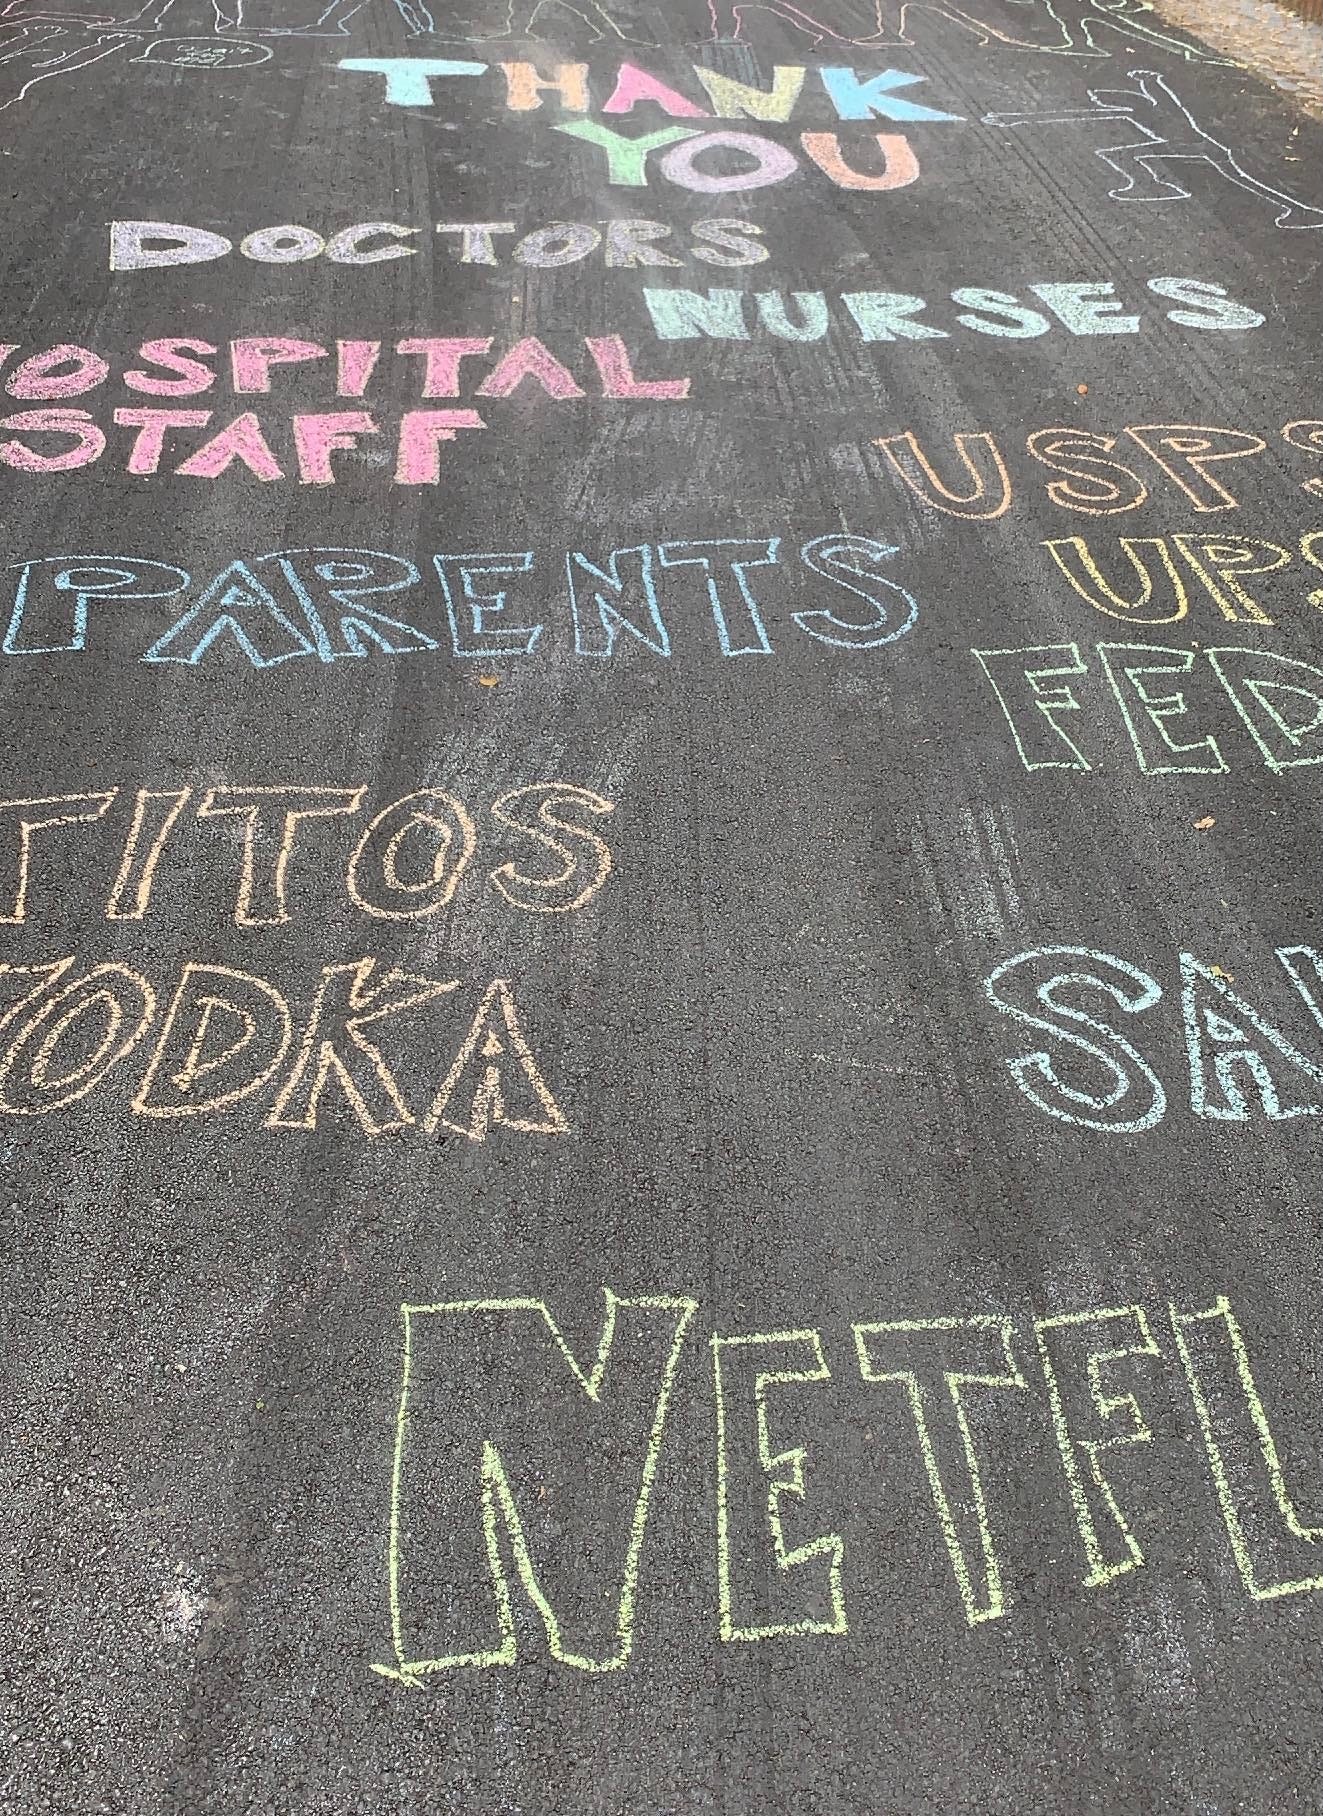 THANK
YOU
DOCTORS
NURSES
HOSPITAL
STAFF
USPS
PARENTS
UPS
FED
TITOS
VODKA
NETFL